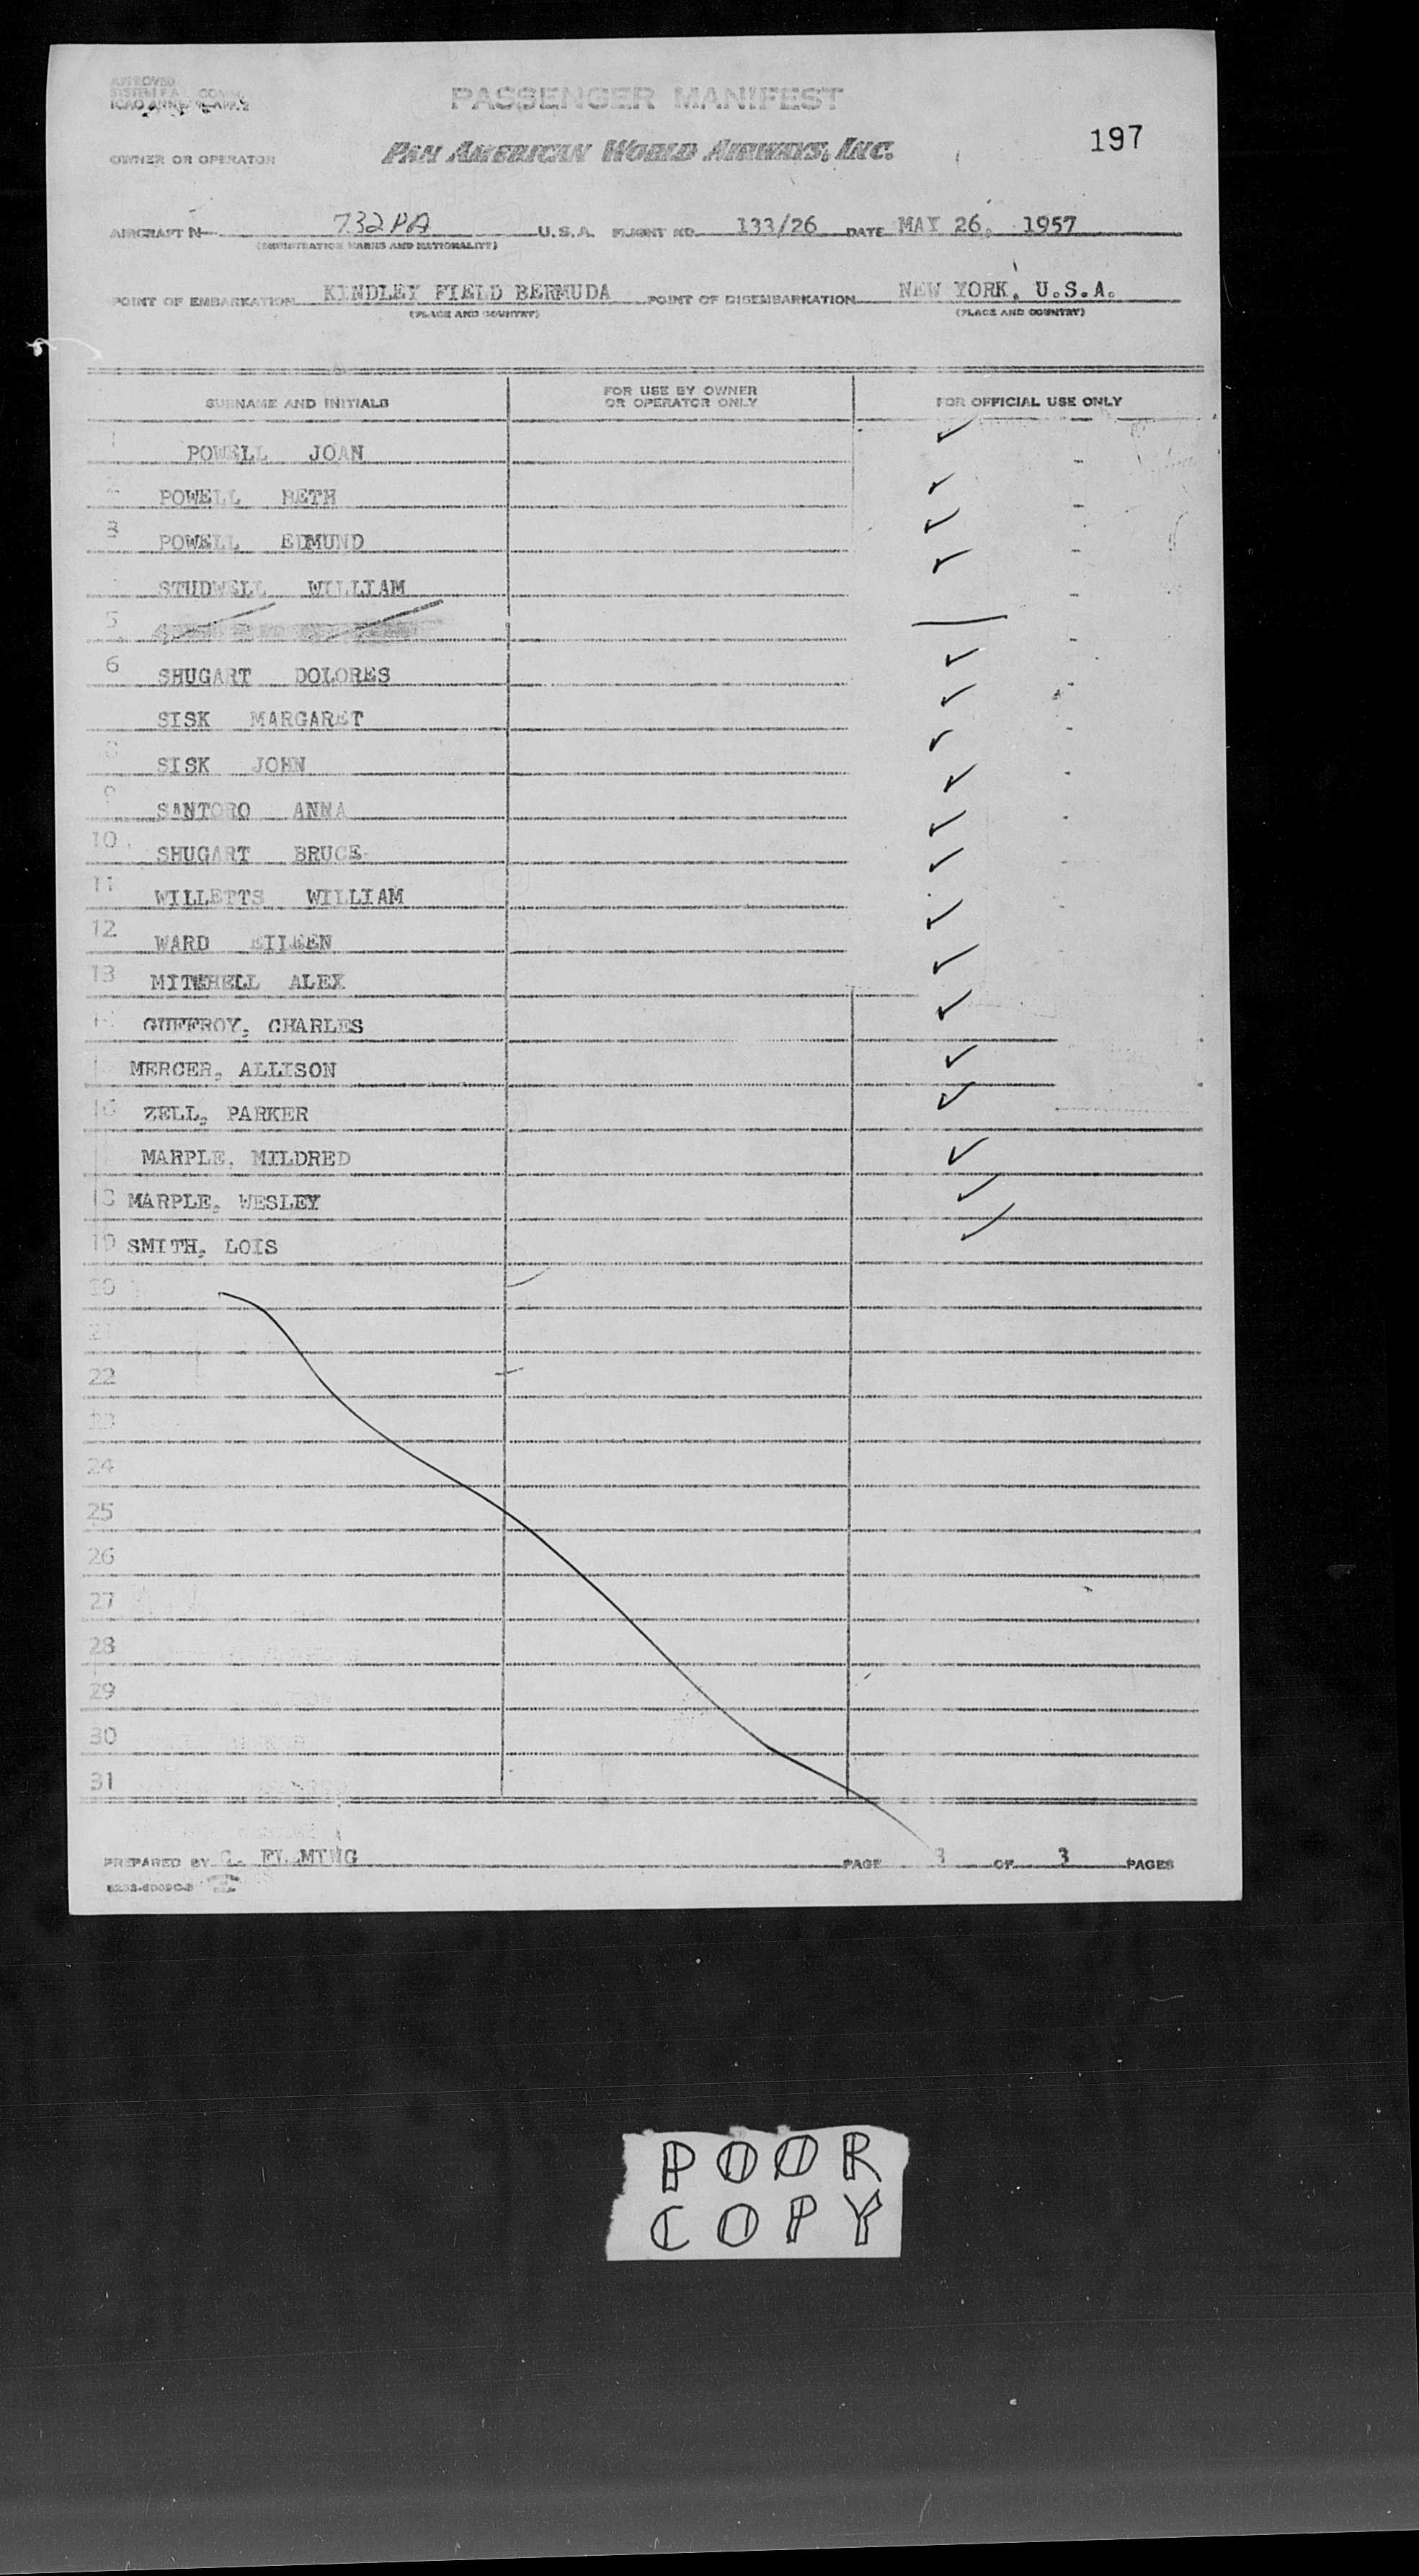 APPROVED
SYSTEM P.A. COMM.
ICAO ANNEX 9-APP.2
PASSENGER MANIFEST
197
OWNER OR OPERATOR PAN AMERICAN WORLD AIRWAYS, INC.
AIRCRAFT N- 732PA U.S.A. FLIGHT NO. 133/26 DATE MAY 26, 1957
(REGISTRATION MARKS AND NATIONALITY)
POINT OF EMBARKATION KINDLEY FIELD BERMUDA POINT OF DISEMBARKATION NEW YORK, U.S.A.
(PLACE AND COUNTRY) (PLACE AND COUNTRY)
SURNAME AND INITIALS FOR USE BY OWNER OR OPERATOR ONLY FOR OFFICIAL USE ONLY
1 POWELL JOAN ✓
2 POWELL BETH ✓
3 POWELL EDMUND ✓
STUDWELL WILLIAM ✓
5
6 SHUGART DOLORES ✓
SISK MARGARET ✓
8 SISK JOHN ✓
9 SANTORO ANNA ✓
10 SHUGART BRUCE ✓
11 WILLETTS WILLIAM ✓
12 WARD EILEEN ✓
13 MITCHELL ALEX ✓
14 GUFFROY, CHARLES ✓
MERCER, ALLISON ✓
16 ZELL, PARKER ✓
MARPLE, MILDRED ✓
18 MARPLE, WESLEY ✓
19 SMITH, LOIS ✓
20
21
22
23
24
25
26
27
28
29
30
31
PREPARED BY C. FLEMING PAGE 3 OF 3 PAGES
POOR
COPY